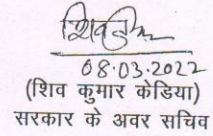 08.03.2022
(शिव कुमार केडिया)
सरकार के अवर सचिव